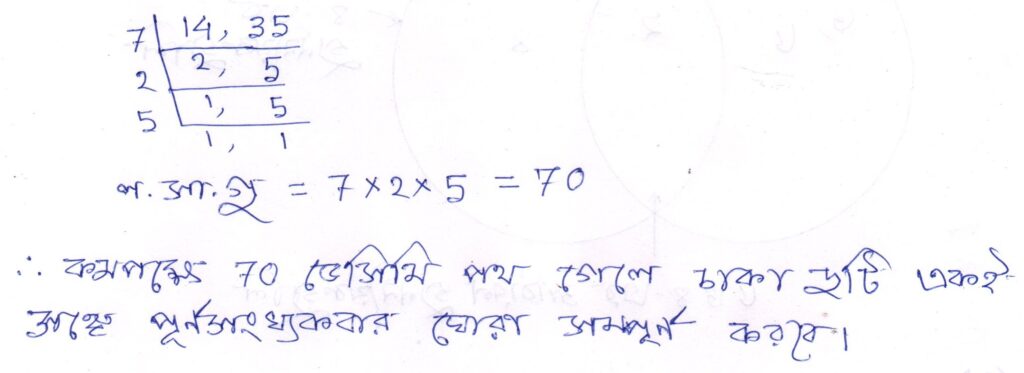 7 | 14, 35
2 | 2, 5
5 | 1, 5
1, 1
ল.সা.গু = 7 × 2 × 5 = 70
∴ কমপক্ষে 70 ডেসিমি পথ গেলে চাকা দুটি একই
সঙ্গে পূর্ণসংখ্যকবার ঘোরা সম্পূর্ণ করবে।